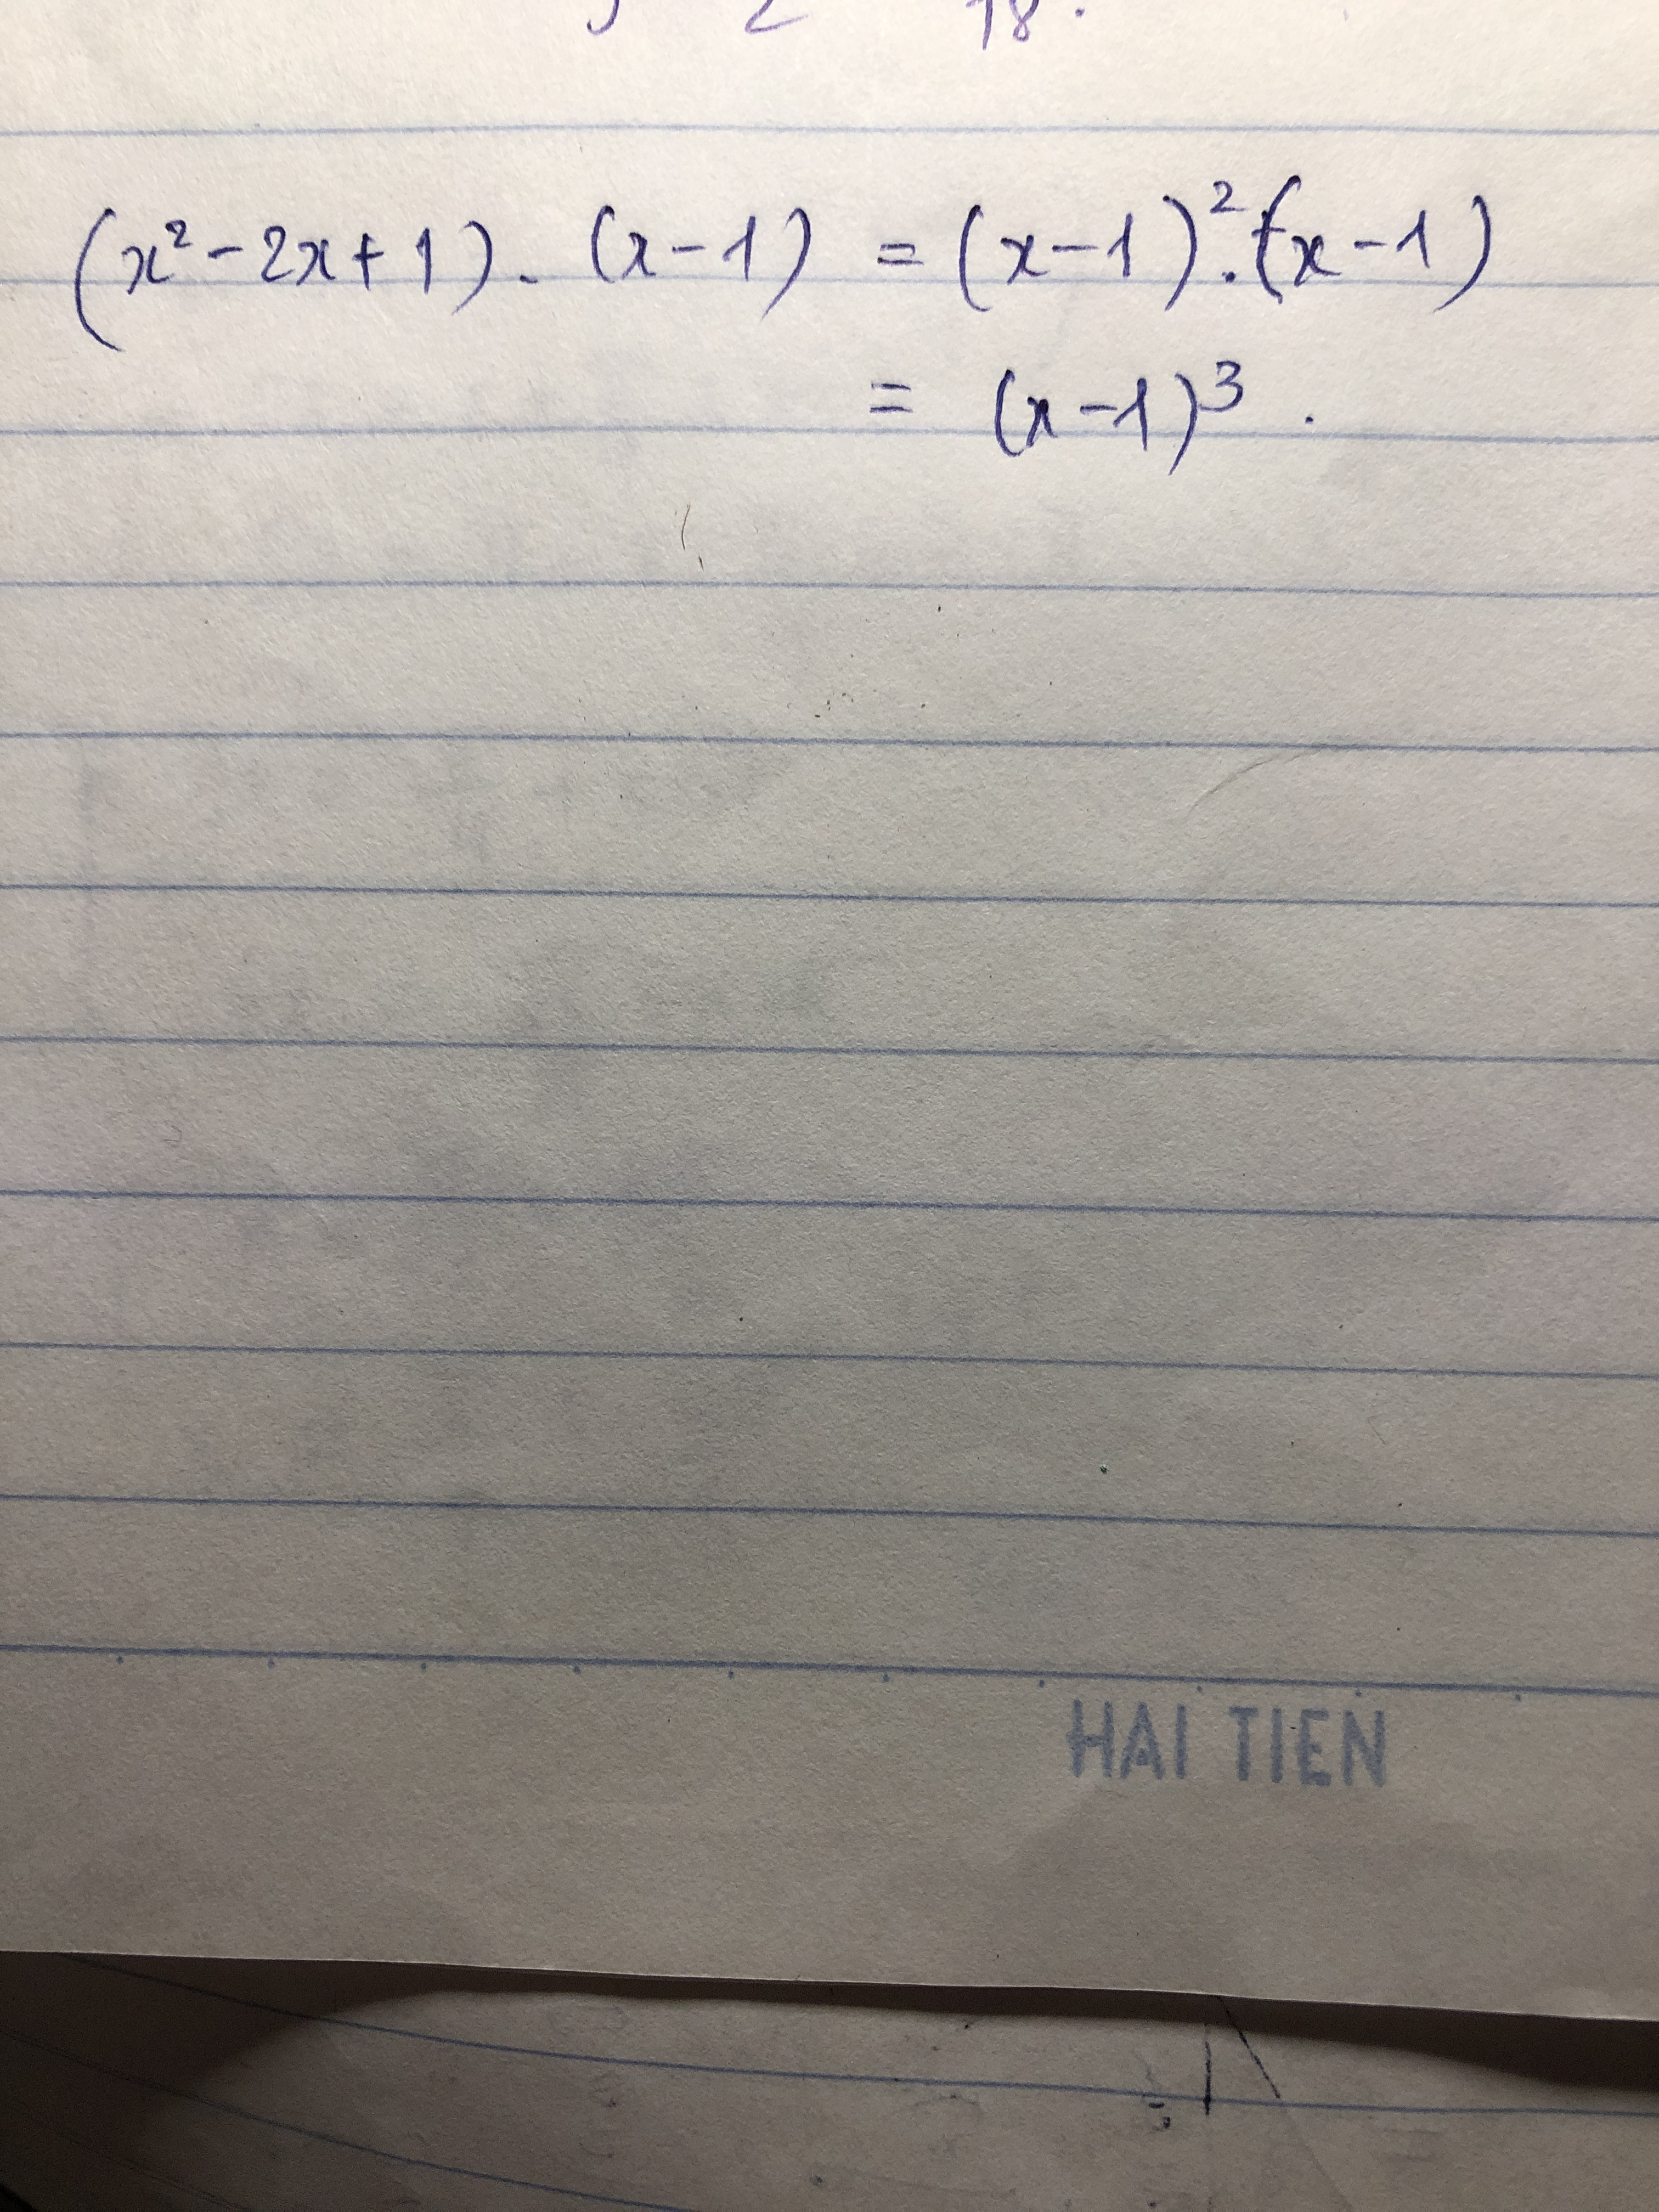 2 18.
(x² - 2x + 1) . (x - 1) = (x - 1)² . (x - 1)
= (x - 1)³ .
HAI TIEN